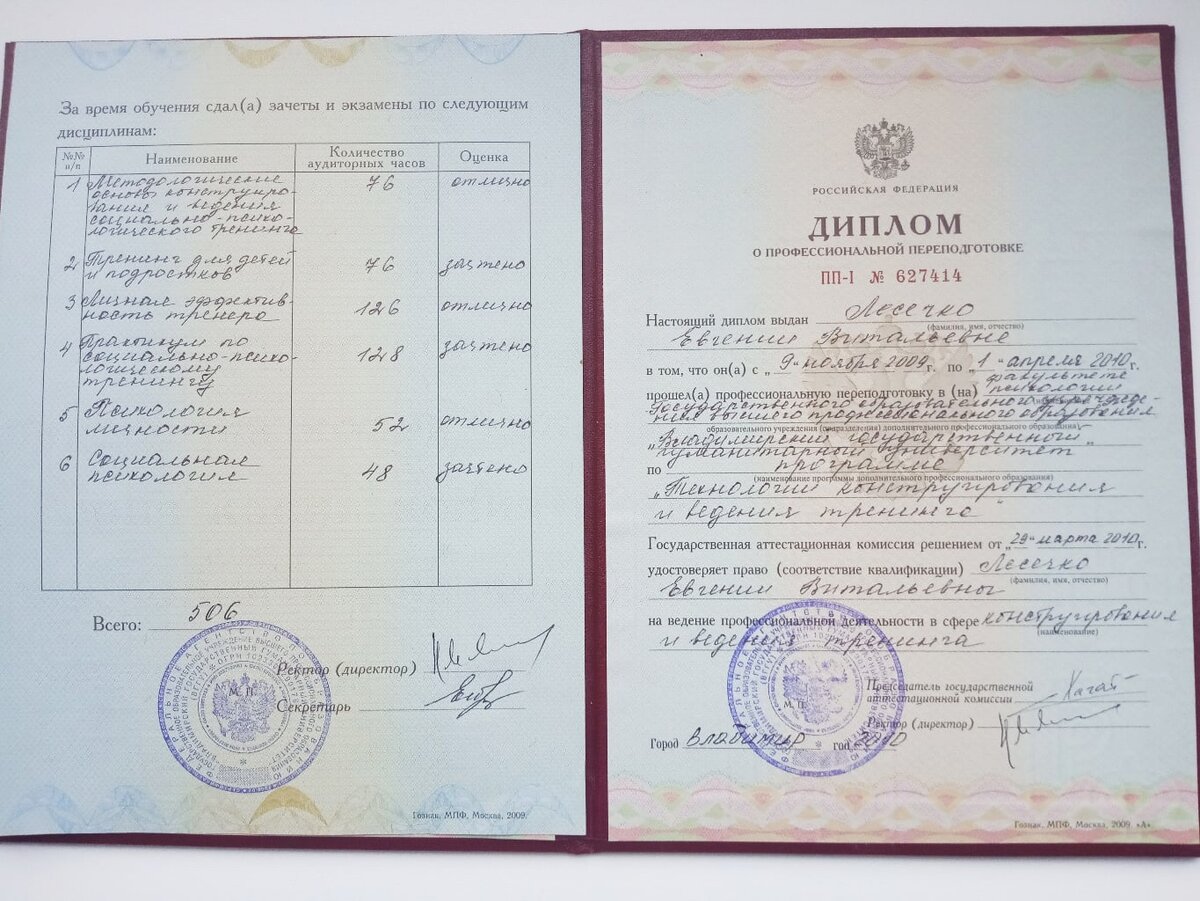 За время обучения сдал(а) зачеты и экзамены по следующим
дисциплинам:
№№ п/п Наименование Количество аудиторных часов Оценка
1 Методологические 76 отлично
основы конструиро-
вания и ведения
социально-психо-
логического тренинга
2 Тренинг для детей 76 зачтено
и подростков
3 Личная эффектив- 126 отлично
ность тренера
4 Практикум по 128 зачтено
социально-психо-
логическому
тренингу
5 Психология 52 отлично
личности
6 Социальная 48 зачтено
психология
Всего: 506
Ректор (директор)
М. П.
Секретарь
Гознак, МПФ, Москва, 2009.
РОССИЙСКАЯ ФЕДЕРАЦИЯ
ДИПЛОМ
О ПРОФЕССИОНАЛЬНОЙ ПЕРЕПОДГОТОВКЕ
ПП-I № 627414
Настоящий диплом выдан Лесечко
(фамилия, имя, отчество)
Евгении Витальевне
в том, что он(а) с „9" ноября 2009г. по „1" апреля 2010г.
прошел(а) профессиональную переподготовку в (на) факультете психологии
Государственного образовательного учрежде-
ния высшего профессионального образования
образовательного учреждения (подразделения) дополнительного профессионального образования)
„Владимирский государственный
гуманитарный университет"
по программе
(наименование программы дополнительного профессионального образования)
„Технологии конструирования
и ведения тренинга"
Государственная аттестационная комиссия решением от „29" марта 2010г.
удостоверяет право (соответствие квалификации) Лесечко
(фамилия, имя, отчество)
Евгении Витальевны
на ведение профессиональной деятельности в сфере конструирования
(наименование)
и ведения тренинга
Председатель государственной
аттестационной комиссии
М. П.
Ректор (директор)
Город Владимир год 2010
Гознак, МПФ, Москва, 2009. «А»